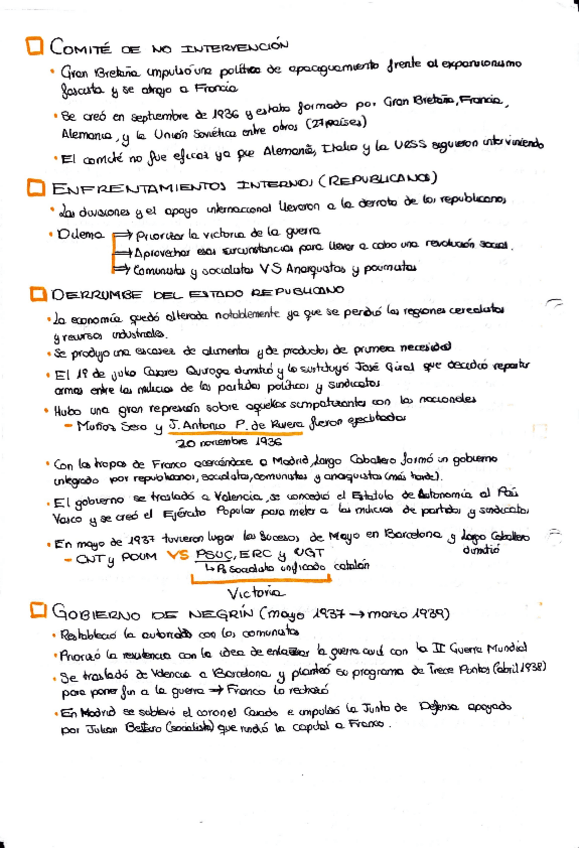 COMITÉ DE NO INTERVENCIÓN
• Gran Bretaña impulsó una política de apaciguamiento frente al expansionismo
fascista y se atrajo a Francia
• Se creó en septiembre de 1936 y estaba formado por Gran Bretaña, Francia,
Alemania, y la Unión Soviética entre otros (27 países)
• El comité no fue eficaz ya que Alemania, Italia y la URSS siguieron interviniendo
ENFRENTAMIENTOS INTERNOS (REPUBLICANOS)
• Las divisiones y el apoyo internacional llevaron a la derrota de los republicanos
• Dilema → Priorizar la victoria de la guerra
→ Aprovechar esas circunstancias para llevar a cabo una revolución social.
→ Comunistas y socialistas VS Anarquistas y poumistas
DERRUMBE DEL ESTADO REPUBLICANO
• La economía quedó alterada notablemente ya que se perdió las regiones cerealistas
y recursos industriales.
• Se produjo una escasez de alimentos y de productos de primera necesidad
• El 19 de julio Casares Quiroga dimitió y lo sustituyó José Giral que decidió repartir
armas entre las milicias de los partidos políticos y sindicatos
• Hubo una gran represión sobre aquellos simpatizantes con los nacionales
– Muñoz Seca y J. Antonio P. de Rivera fueron ejecutados
20 noviembre 1936
• Con las tropas de Franco acercándose a Madrid, Largo Caballero formó un gobierno
integrado por republicanos, socialistas, comunistas y anarquistas (más tarde).
• El gobierno se trasladó a Valencia, se concedió el Estatuto de Autonomía al País
Vasco y se creó el Ejército Popular para meter a las milicias de partidos y sindicatos
• En mayo de 1937 tuvieron lugar los Sucesos de Mayo en Barcelona y Largo Caballero
dimitió
– CNT y POUM VS PSUC, ERC y UGT
↳ P. Socialista unificado catalán
Victoria
GOBIERNO DE NEGRÍN (mayo 1937 → marzo 1939)
• Restableció la autoridad con los comunistas
• Priorizó la resistencia con la idea de enlazar la guerra civil con la II Guerra Mundial
• Se trasladó de Valencia a Barcelona y planteó su programa de Trece Puntos (abril 1938)
para poner fin a la guerra → Franco lo rechazó
• En Madrid se sublevó el coronel Casado e impulsó la Junta de Defensa apoyado
por Julian Besteiro (socialista) que rindió la capital a Franco.